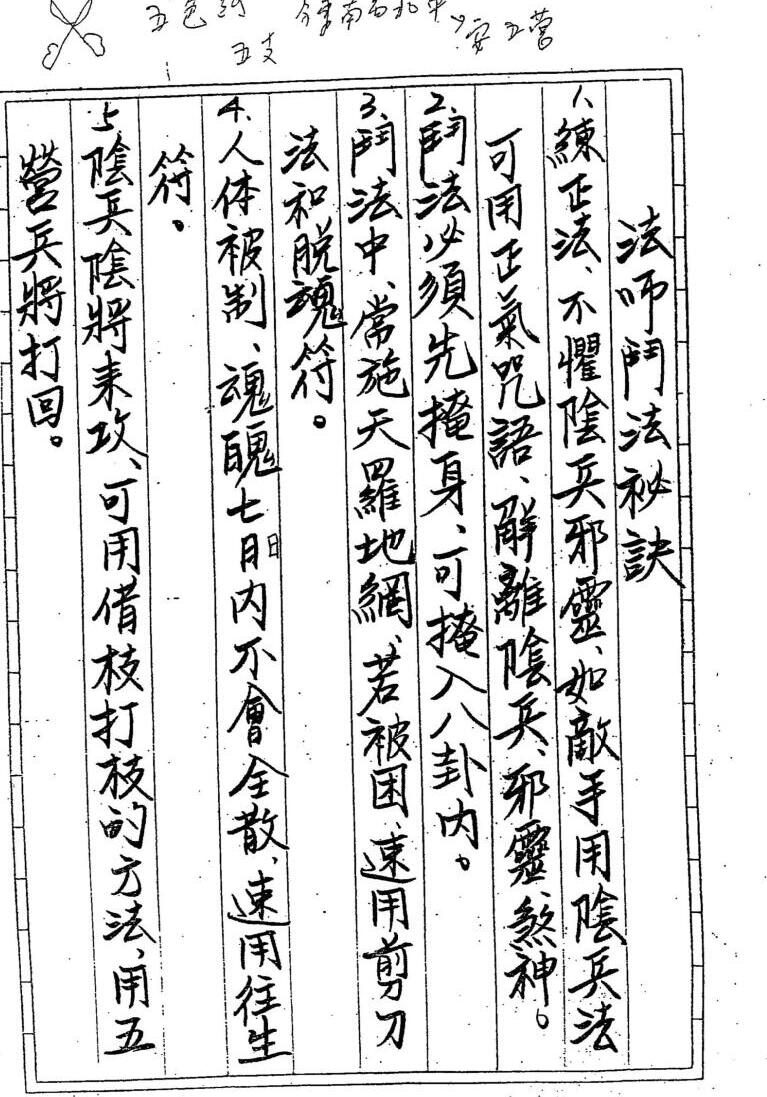 五色
南西北中
安五營
五支
法师鬥法祕訣
1、練正法、不懼陰兵邪靈、如敵手用陰兵法
可用正氣咒語、解離陰兵、邪靈、煞神。
2、鬥法必須先掩身、可掩入八卦内。
3、鬥法中、常施天羅地網、若被困、速用剪刀
法和脱魂符。
4、人体被制、魂魄七日内不會全散、速用往生
符。
5、陰兵陰將来攻、可用借枝打枝的方法、用五
營兵將打回。